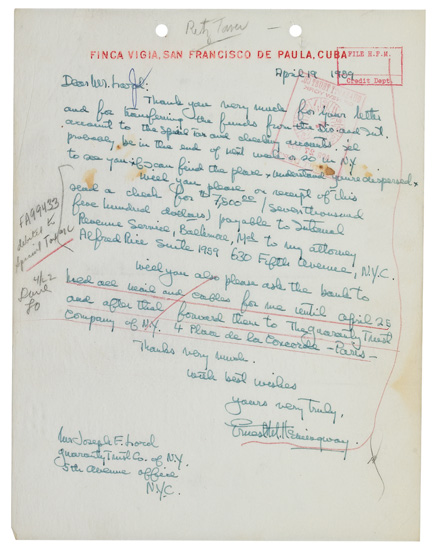 Ritz Tower
FINCA VIGIA, SAN FRANCISCO DE PAULA, CUBA
FILE
Credit Dept.
April 19 1959
Dear Mr. Lord:
Thank you very much for your letter
and for transferring the funds from the
account to the Special Tax and checking accounts.
probably be in the end of next week or so in N.Y.
to see you if I can find the place. I understand you're dispersed.
Will you please on receipt of this
send a check for $7,500.00 / seven thousand
five hundred dollars) payable to Internal
Revenue Service, Baltimore, Md to my attorney
Alfred Rice Suite 1959 630 Fifth Avenue, N.Y.C.
Will you also please ask the bank to
hold all mail and cables for me until April 25
and after that forward them to The Guaranty Trust
Company of N.Y. 4 Place de la Concorde - Paris -
Thanks very much.
With best wishes
Yours very truly,
Ernest M. Hemingway.
FA99433
4/22
Mr. Joseph F. Lord
Guaranty Trust Co. of N.Y.
5th Avenue office
N.Y.C.